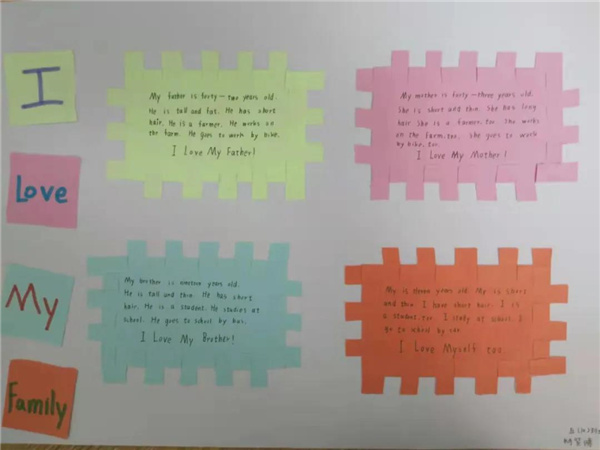 I
Love
My
Family
My father is forty-two years old.
He is tall and fat. He has short
hair. He is a farmer. He works on
the farm. He goes to work by bike.
I Love My Father!
My mother is forty-three years old.
She is short and thin. She has long
hair She is a farmer. too. She works
on the farm. too. She goes to work
by bike. too.
I Love My Mother!
My brother is nineteen years old.
He is tall and thin. He has short
hair. He is a student. He studies at
school. He goes to school by bus.
I Love My Brother!
My is eleven years old. My is short
and thin I have short hair. I is
a student. too. I study at school. I
go to school by
I Love Myself too.